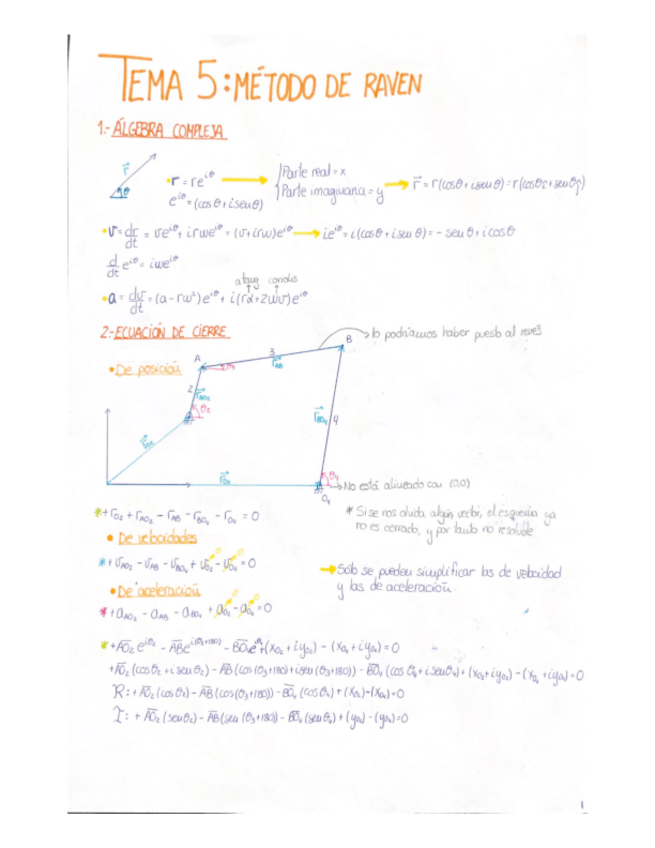 TEMA 5: MÉTODO DE RAVEN
1.- ÁLGEBRA COMPLEJA
r⃗
θ
• r = re^{iθ}
e^{iθ} = (cosθ + i senθ)
Parte real = x
Parte imaginaria = y
r⃗ = r(cosθ + i senθ) = r(cosθ î + senθ ĵ)
• v = dr/dt = ve^{iθ} + irωe^{iθ} = (v + irω)e^{iθ}
ie^{iθ} = i(cosθ + i senθ) = - senθ + i cosθ
d/dt e^{iθ} = iωe^{iθ}
atang coriolis
• a = dv/dt = (a - rω²)e^{iθ} + i(rα + 2ωv)e^{iθ}
2.- ECUACIÓN DE CIERRE
B
lo podríamos haber puesto al revés
A
3
r⃗AB
• De posición
2
r⃗AO2
θ2
r⃗BO4
4
r⃗O2
θ4
r⃗O4
No está alineado con (0,0)
O4
* + rO2 + rAO2 - rAB - rBO4 - rO4 = 0
* Si se nos olvida algún vector, el esquema ya
no es cerrado, y por tanto no resoluble
• De velocidades
* + vAO2 - vAB - vBO4 + vO2 - vO4 = 0
0 0
Sólo se pueden simplificar las de velocidad
y las de aceleración.
• De aceleración
* + aAO2 - aAB - aBO4 + aO2 - aO4 = 0
0 0
* + AO2 e^{iθ2} - AB e^{i(θ3+180)} - BO4 e^{iθ4} + (xO2 + iyO2) - (xO4 + iyO4) = 0
+ AO2 (cosθ2 + i senθ2) - AB (cos(θ3+180) + i sen(θ3+180)) - BO4 (cosθ4 + i senθ4) + (xO2 + iyO2) - (xO4 + iyO4) = 0
R: + AO2 (cosθ2) - AB (cos(θ3+180)) - BO4 (cosθ4) + (xO2) - (xO4) = 0
I: + AO2 (senθ2) - AB (sen(θ3+180)) - BO4 (senθ4) + (yO2) - (yO4) = 0
1